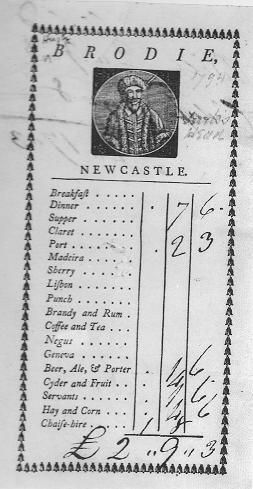 BRODIE,
1794
NEWCASTLE.
Breakfaſt . . . . .
Dinner . . . . . . 7 6.
Supper . . . . .
Claret . . . . .
Port . . . . . . 2 3
Madeira . . . . .
Sherry . . . . .
Liſbon . . . . .
Punch . . . . .
Brandy and Rum .
Coffee and Tea . . .
Negus . . . . .
Geneva . . . . .
Beer, Ale, & Porter .
Cyder and Fruit . . .
Servants . . . . .
Hay and Corn . . . .
Chaiſe-hire . . . .
£ 2 " 9 " 3